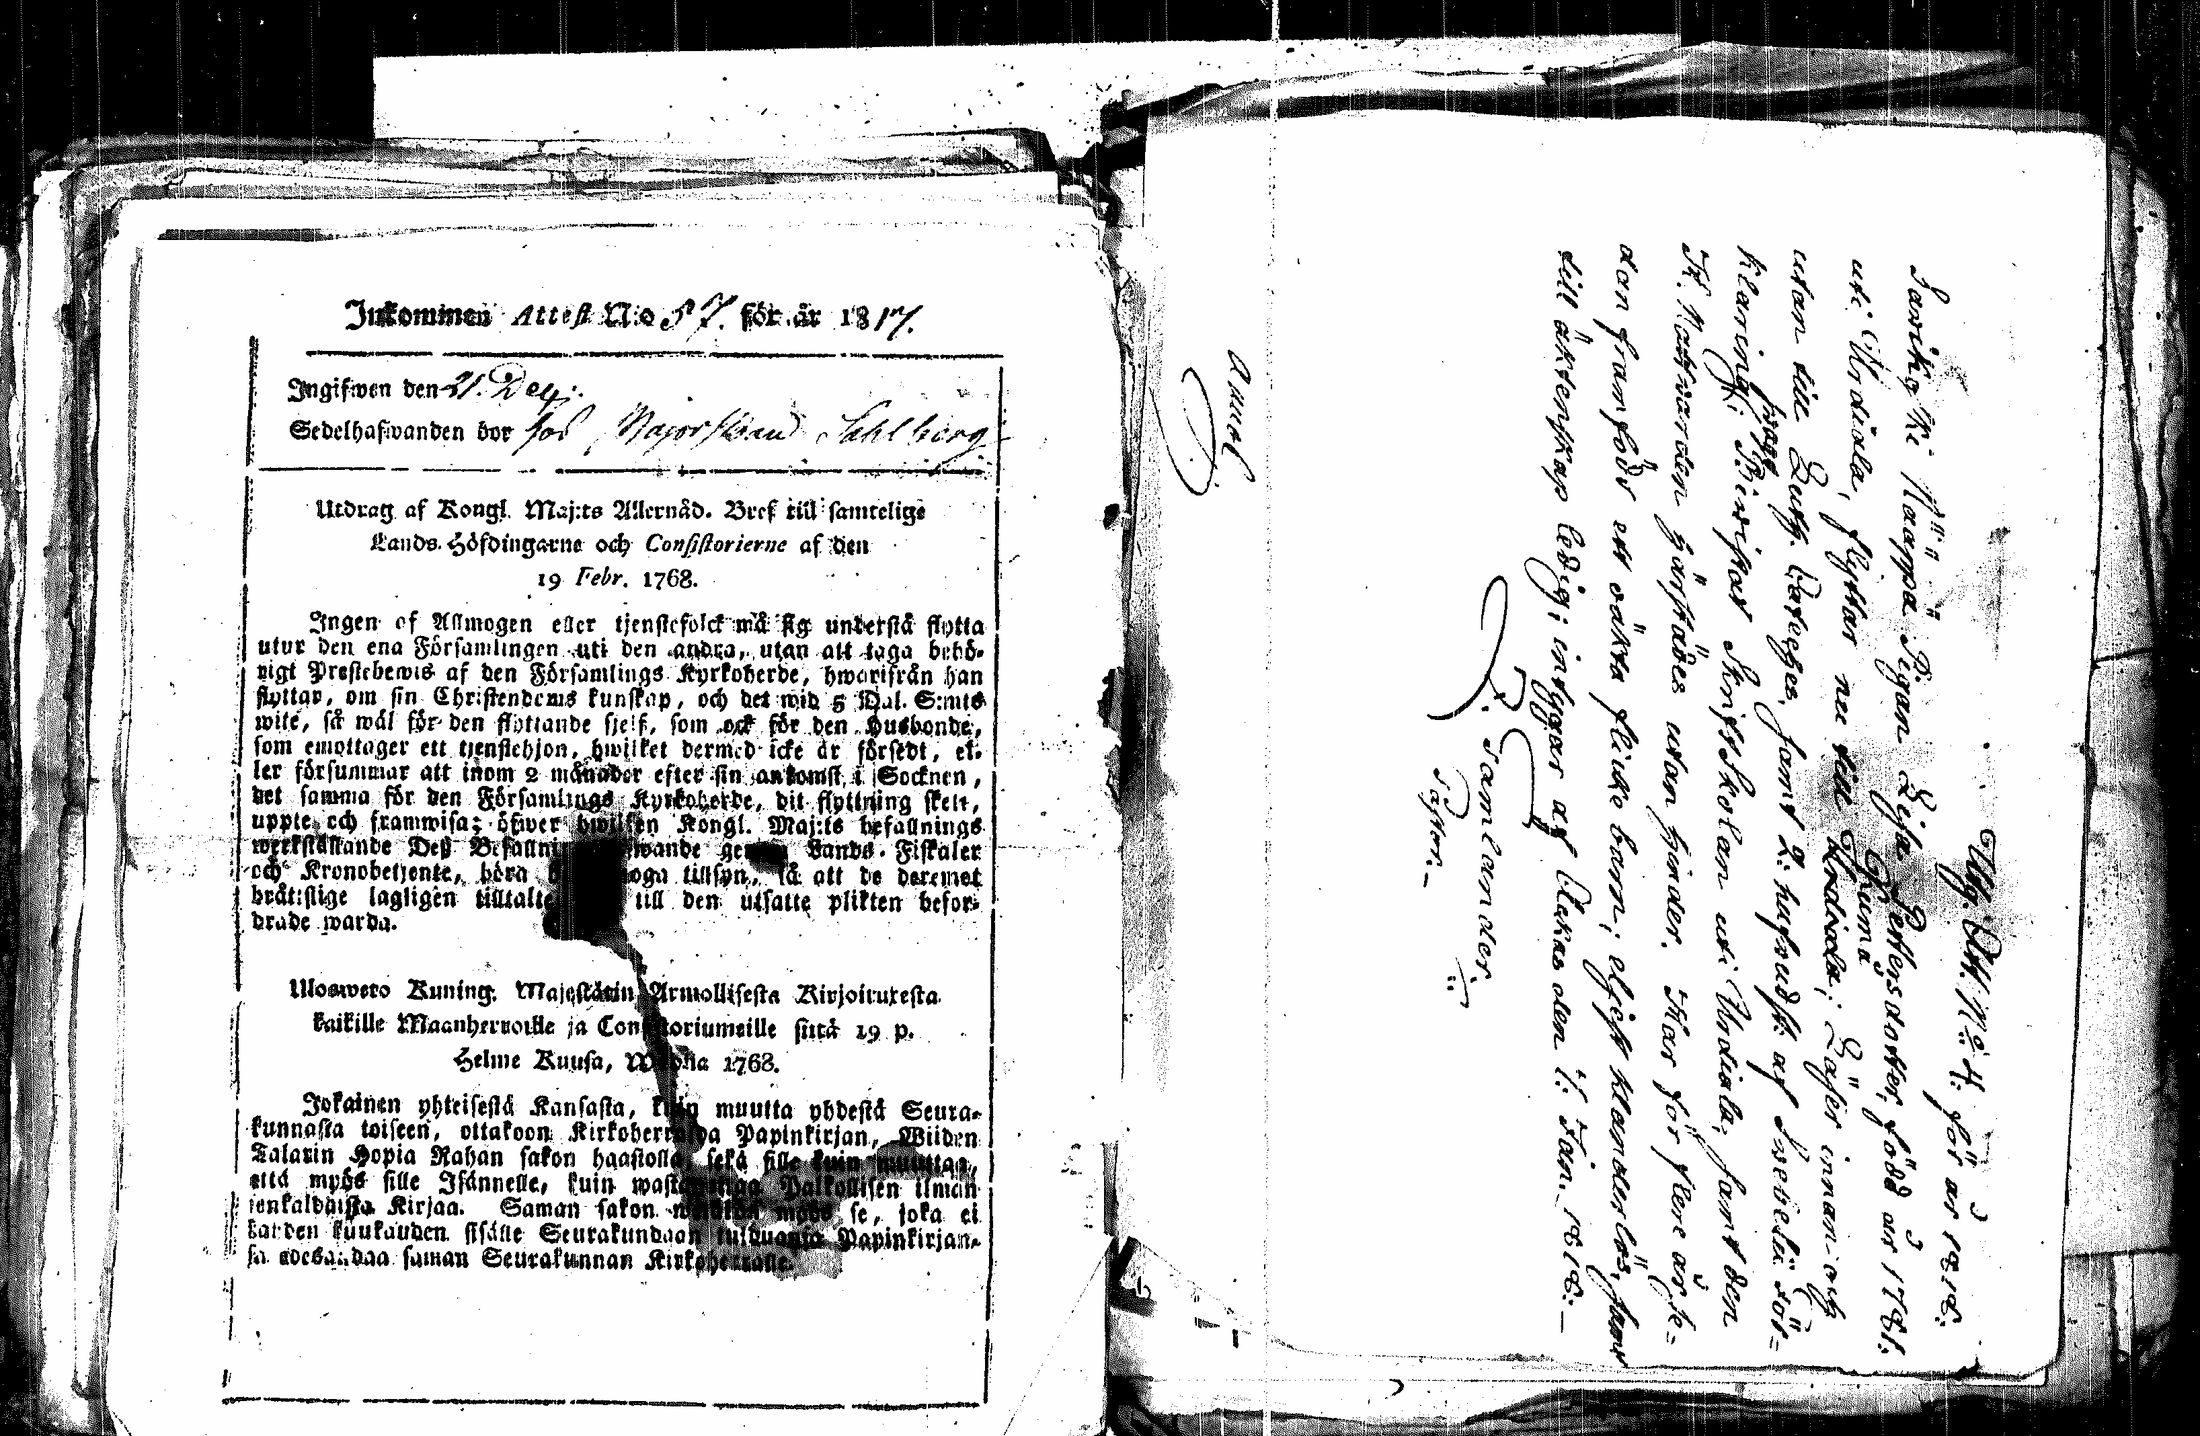 Inkommen Attest N:o 57. för år 1817.
Ingifwen den 21. Dec:
Sedelhafwanden bor hos Majorskan Sahlberg
Utdrag af Kongl. Maj:ts Allernåd. Bref till samtelige
Lands-Höfdingarne och Consistorierne af den
19 Febr. 1768.
Ingen af Allmogen eller tjenstefolck må sig understå flytta
utur den ena Församlingen uti den andra, utan att taga behö-
rigt Prestebewis af den Församlings Kyrkoherde, hwarifrån han
flyttar, om sin Christendoms kunskap, och det wid 5 Dal. S:mts
wite, så wäl för den flyttande sjelf, som ock för den Husbonde,
som emottager ett tjenstehjon, hwilket dermed icke är försedt, el-
ler försummar att inom 2 månader efter sin ankomst i Socknen,
det samma för den Församlings Kyrkoherde, dit flyttning skett,
uppte och framwisa; öfwer hwilken Kongl. Maj:ts befallnings
werkställande Deß Befallni wande ge Lands-Fiskaler
och Kronobetjente, böra noga tillsyn, så att de deremot
brätslige lagligen tilltalte till den utsatte plikten befor-
drade warda.
Uloswero Kuning. Majestätin Armollisesta Kirjoituxesta
kaikille Maanherroille ja Consistoriumeille siitä 19 p.
Helme Kuusa, Wuonna 1768.
Jokainen yhteisestä Kansasta, kuin muutta yhdestä Seura-
kunnasta toiseen, ottakoon Kirkoherralda Papinkirjan, Wiiden
Talarin Hopia Rahan sakon haastolla, sekä sille kuin muuttaa,
että myös sille Isännelle, kuin wastanottaa Palkollisen ilman
senkaldaista Kirjaa. Saman sakon wetäkön myös se, joka ei
kahden kuukauden sisälle Seurakundaan tulduansa Papinkirjan-
sa edesandaa saman Seurakunnan Kirkoherralle.
Utg. Att. N:o 4. för år 1818.
Sarikz Ke Pigan Lisa Pettersdotter, född år 1781.
Kumå
uti Urdiala, flyttar nu till Urdiala; Läser innan och
utan till Luth. Cateches. samt 2: hufwudst. af Swebelii För-
klaring; Bewistat Skriftskolan uti Urdiala, samt den
H. Nattwarden jämstädes utan hinder. Har för flere år se-
dan framfödt ett oäkta flicke barn; eljest klanderlös, samt
till äktenskap ledig; intygar af Akas den 1: Jan. 1818.
Samlander
Pastor.